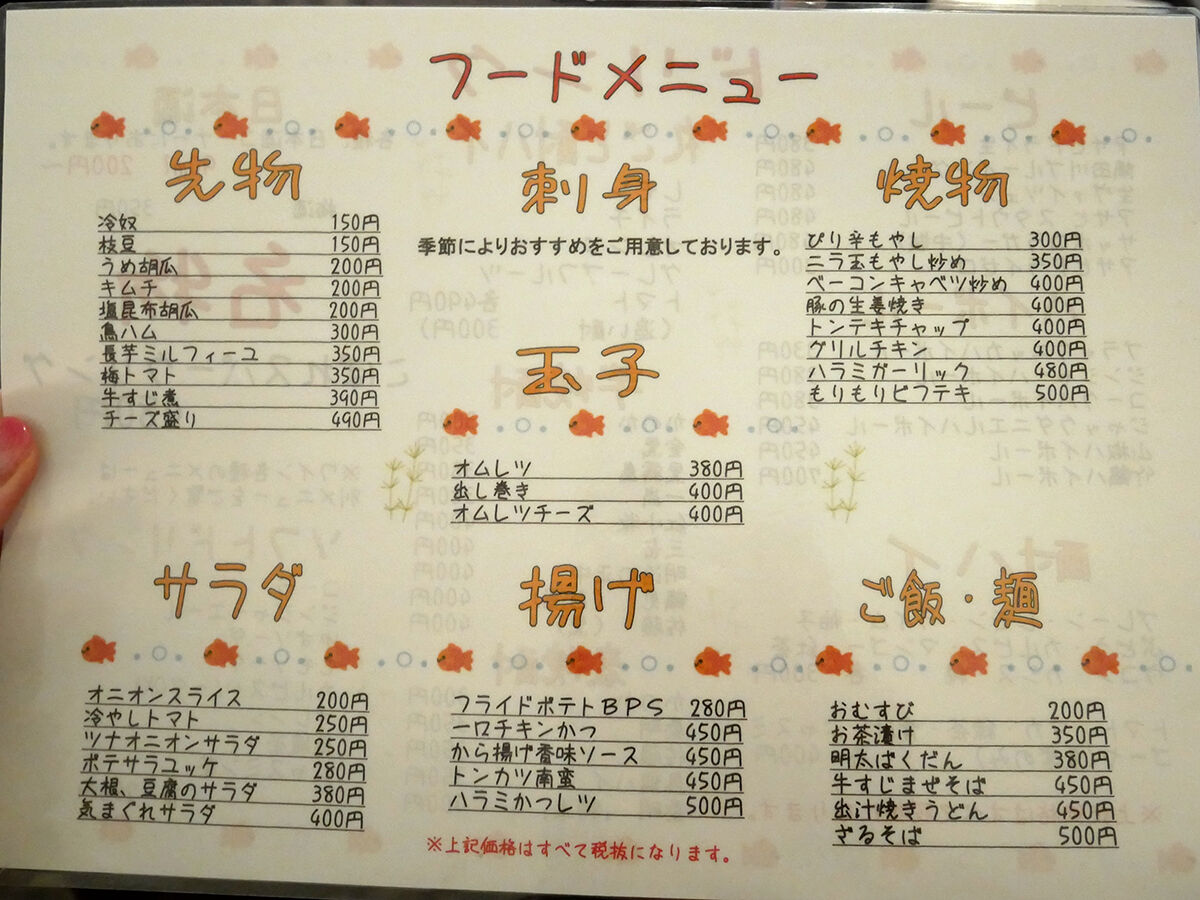 フードメニュー
先物
冷奴 150円
枝豆 150円
うめ胡瓜 200円
キムチ 200円
塩昆布胡瓜 200円
鳥ハム 300円
長芋ミルフィーユ 350円
梅トマト 350円
牛すじ煮 390円
チーズ盛り 490円
刺身
季節によりおすすめをご用意しております。
玉子
オムレツ 380円
出し巻き 400円
オムレツチーズ 400円
焼物
ぴり辛もやし 300円
ニラ玉もやし炒め 350円
ベーコンキャベツ炒め 400円
豚の生姜焼き 400円
トンテキチャップ 400円
グリルチキン 400円
ハラミガーリック 480円
もりもりビフテキ 500円
サラダ
オニオンスライス 200円
冷やしトマト 250円
ツナオニオンサラダ 250円
ポテサラユッケ 280円
大根、豆腐のサラダ 380円
気まぐれサラダ 400円
揚げ
フライドポテトBPS 280円
一口チキンかつ 450円
から揚げ香味ソース 450円
トンカツ南蛮 450円
ハラミかつレツ 500円
ご飯・麺
おむすび 200円
お茶漬け 350円
明太ばくだん 380円
牛すじまぜそば 450円
出汁焼きうどん 450円
ざるそば 500円
※上記価格はすべて税抜になります。